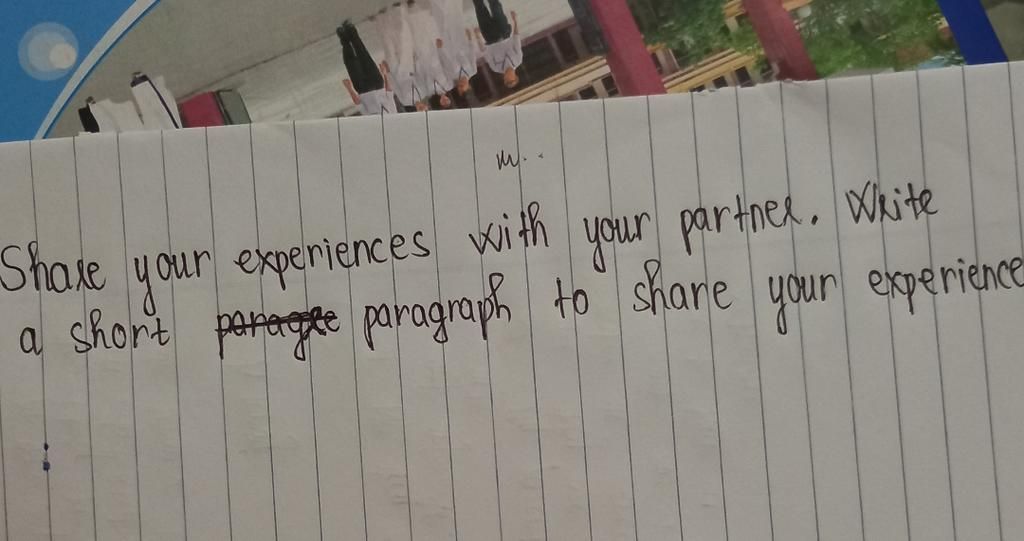 m..
Share your experiences with your partner. Write
a short paragraph to share your experience